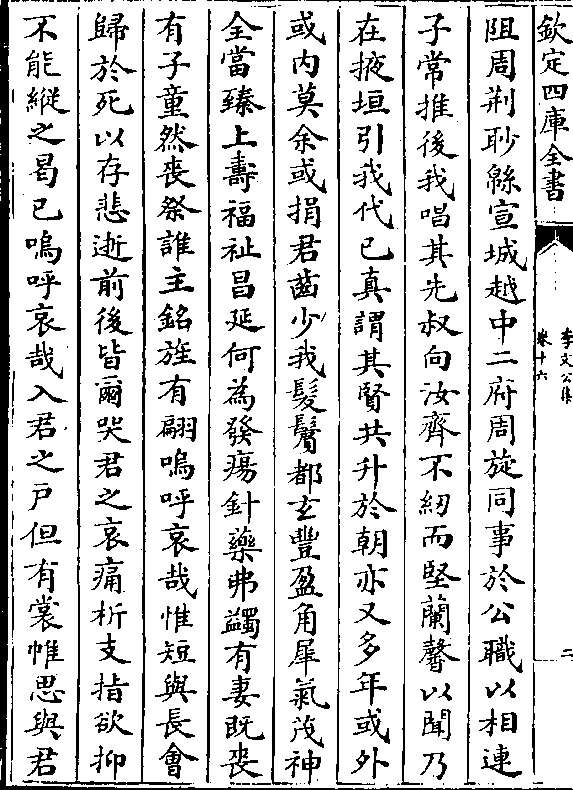 欽定四庫全書
李文公集
卷十六
二
阻周荆耖緜宣城越中二府周旋同事於公職以相連
子常推後我唱其先叔向汝齊不紉而堅蘭馨以聞乃
在掖垣引我代已真謂其賢共升於朝亦又多年或外
或内莫余或捐君齒少我髮鬒都玄豐盈角犀氣茂神
全當臻上壽福祉昌延何為發瘍針藥弗蠲有妻既喪
有子童然喪祭誰主銘旌有翩嗚呼哀哉惟短與長會
歸於死以存悲逝前後皆爾哭君之哀痛析支指欲抑
不能縱之曷已嗚呼哀哉入君之戸但有裳帷思與君